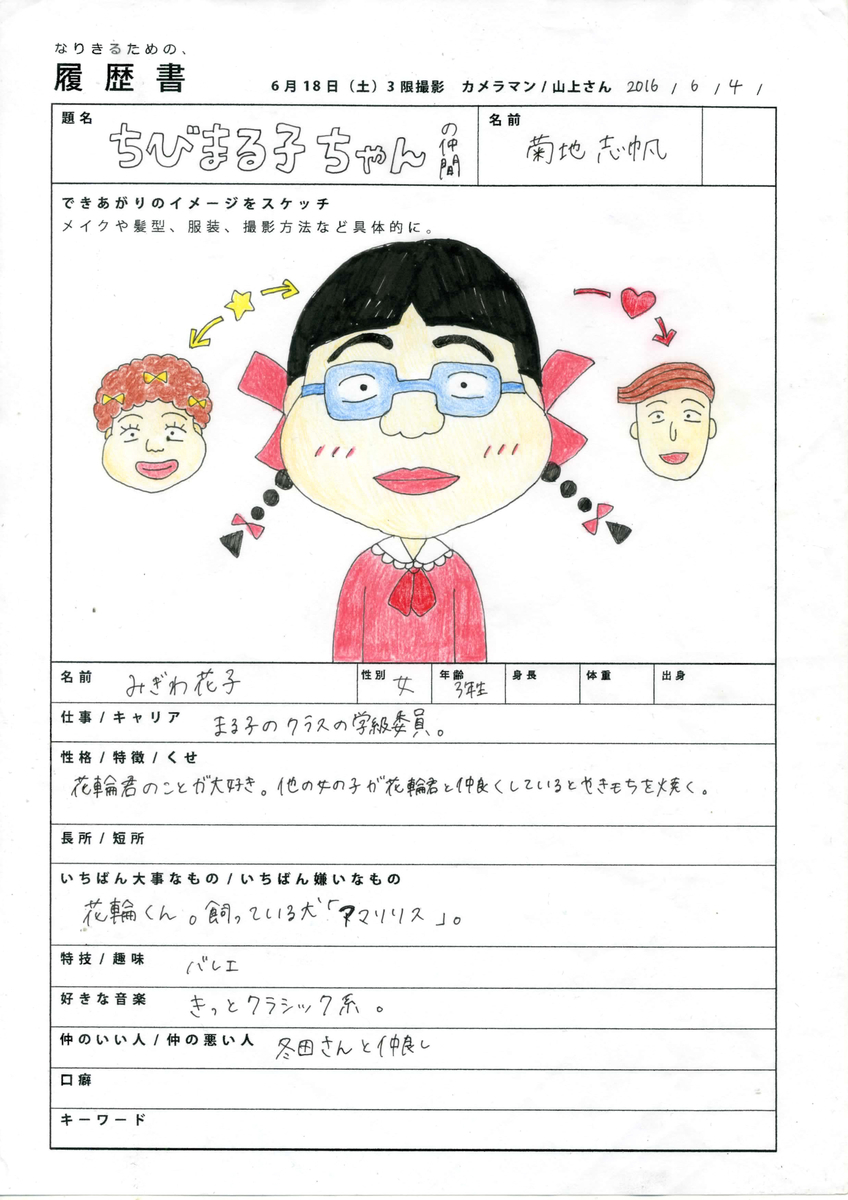 なりきるための、
履歴書
6月18日（土）3限撮影 カメラマン/山上さん 2016 / 6 / 4 /
題名 ちびまる子ちゃんの仲間
名前 菊地 志帆
できあがりのイメージをスケッチ
メイクや髪型、服装、撮影方法など具体的に。
名前 みぎわ花子 性別 女 年齢 3年生 身長 体重 出身
仕事/キャリア まる子のクラスの学級委員。
性格/特徴/くせ
花輪君のことが大好き。他の女の子が花輪君と仲良くしているとやきもちを焼く。
長所/短所
いちばん大事なもの/いちばん嫌いなもの
花輪くん。飼っている犬「アマリリス」。
特技/趣味 バレエ
好きな音楽 きっとクラシック系。
仲のいい人/仲の悪い人 冬田さんと仲良し
口癖
キーワード